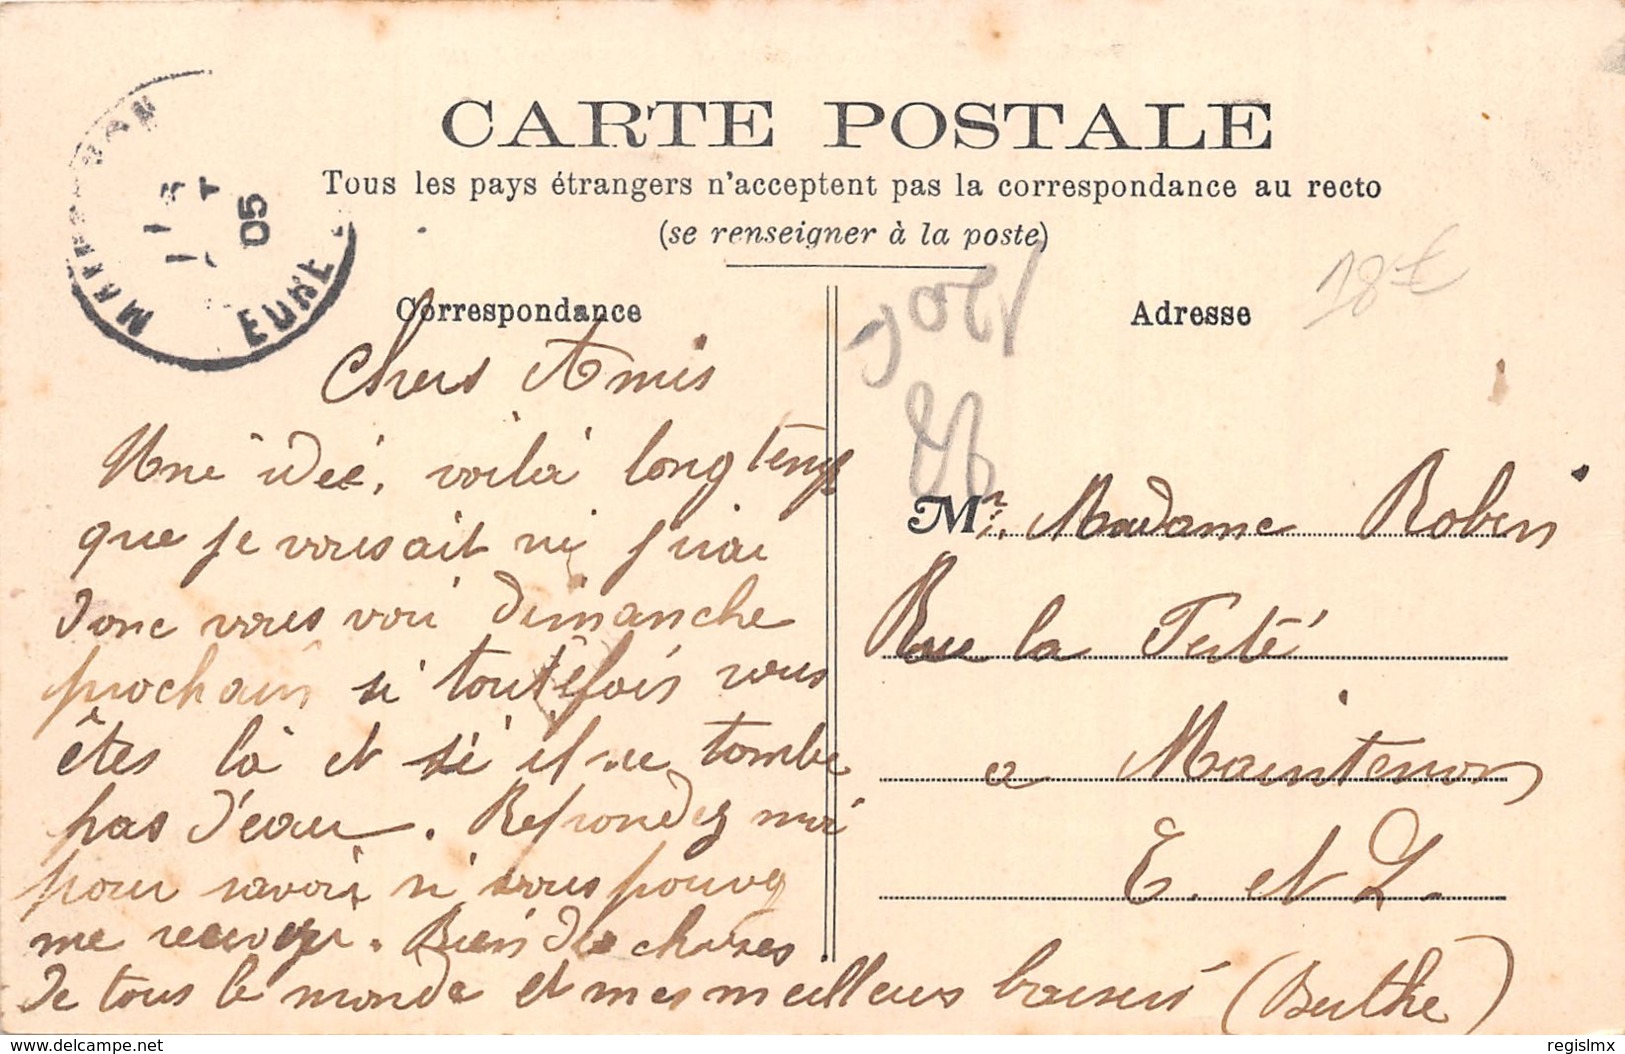 CARTE POSTALE
Tous les pays étrangers n'acceptent pas la correspondance au recto
(se renseigner à la poste)
05
EURE
Correspondance
Adresse
18€
Chers Amis
Une idée, voilà longtemps
que je vous ait ni j'irai
donc vous voir dimanche
prochain si toutefois vous
êtes là et si il ne tombe
pas d'eau. Repondez moi
pour savoir si vous pouvez
me recevoir. Bien des choses
de tous le monde et mes meilleurs baisers (Berthe)
Mr. Madame Robin
Rue la Ferté
a Maintenon
E. et L.
delcampe.net
regislmx